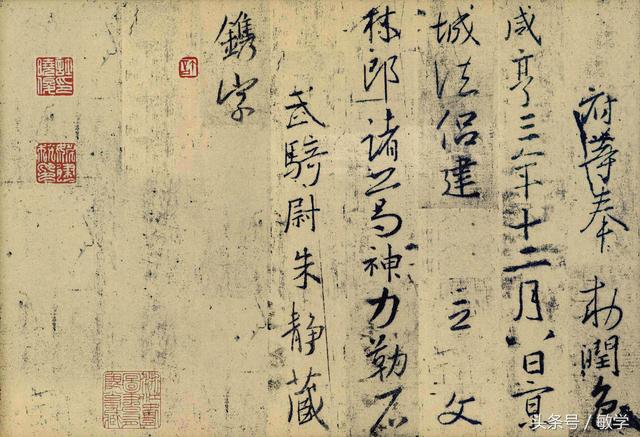 府等奉 勅潤色
咸亨三年十二月八日京
城法侶建 立 文
林郎諸葛神力勒石
武騎尉朱静藏
鐫字
头条号 / 敏学